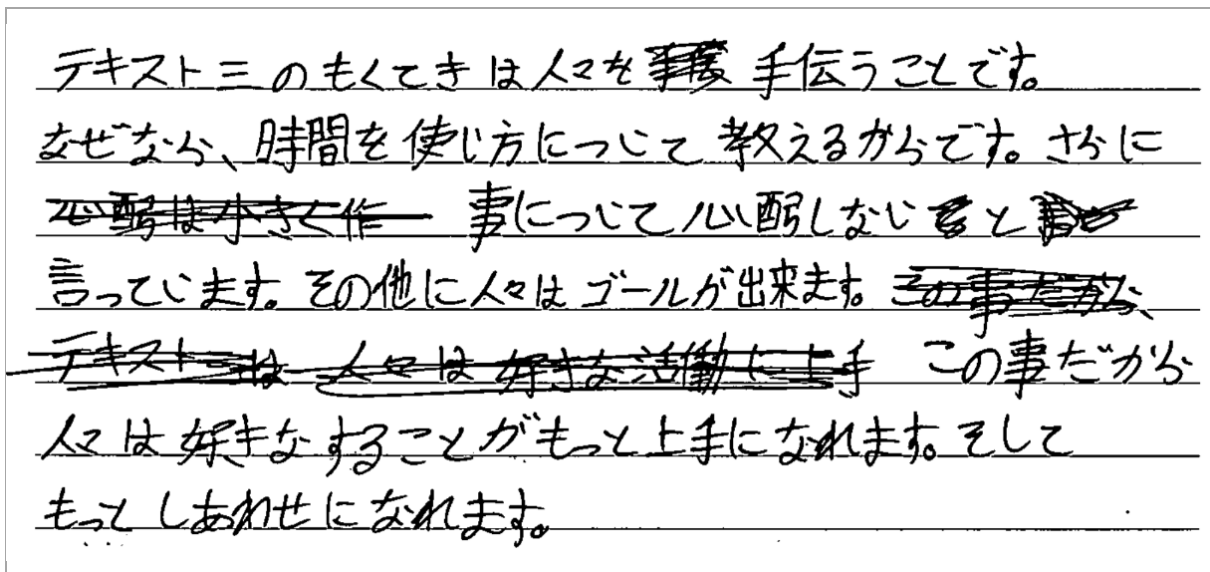 テキスト三のもくてきは人々を手伝うことです。
なぜなら、時間を使い方について教えるからです。さらに
心配は小さく作 事について心配しないと
言っています。その他に人々はゴールが出来ます。この事だから、
テキストは 人々は好きな活働に上手 この事だから
人々は好きなすることがもっと上手になれます。そして
もっとしあわせになれます。